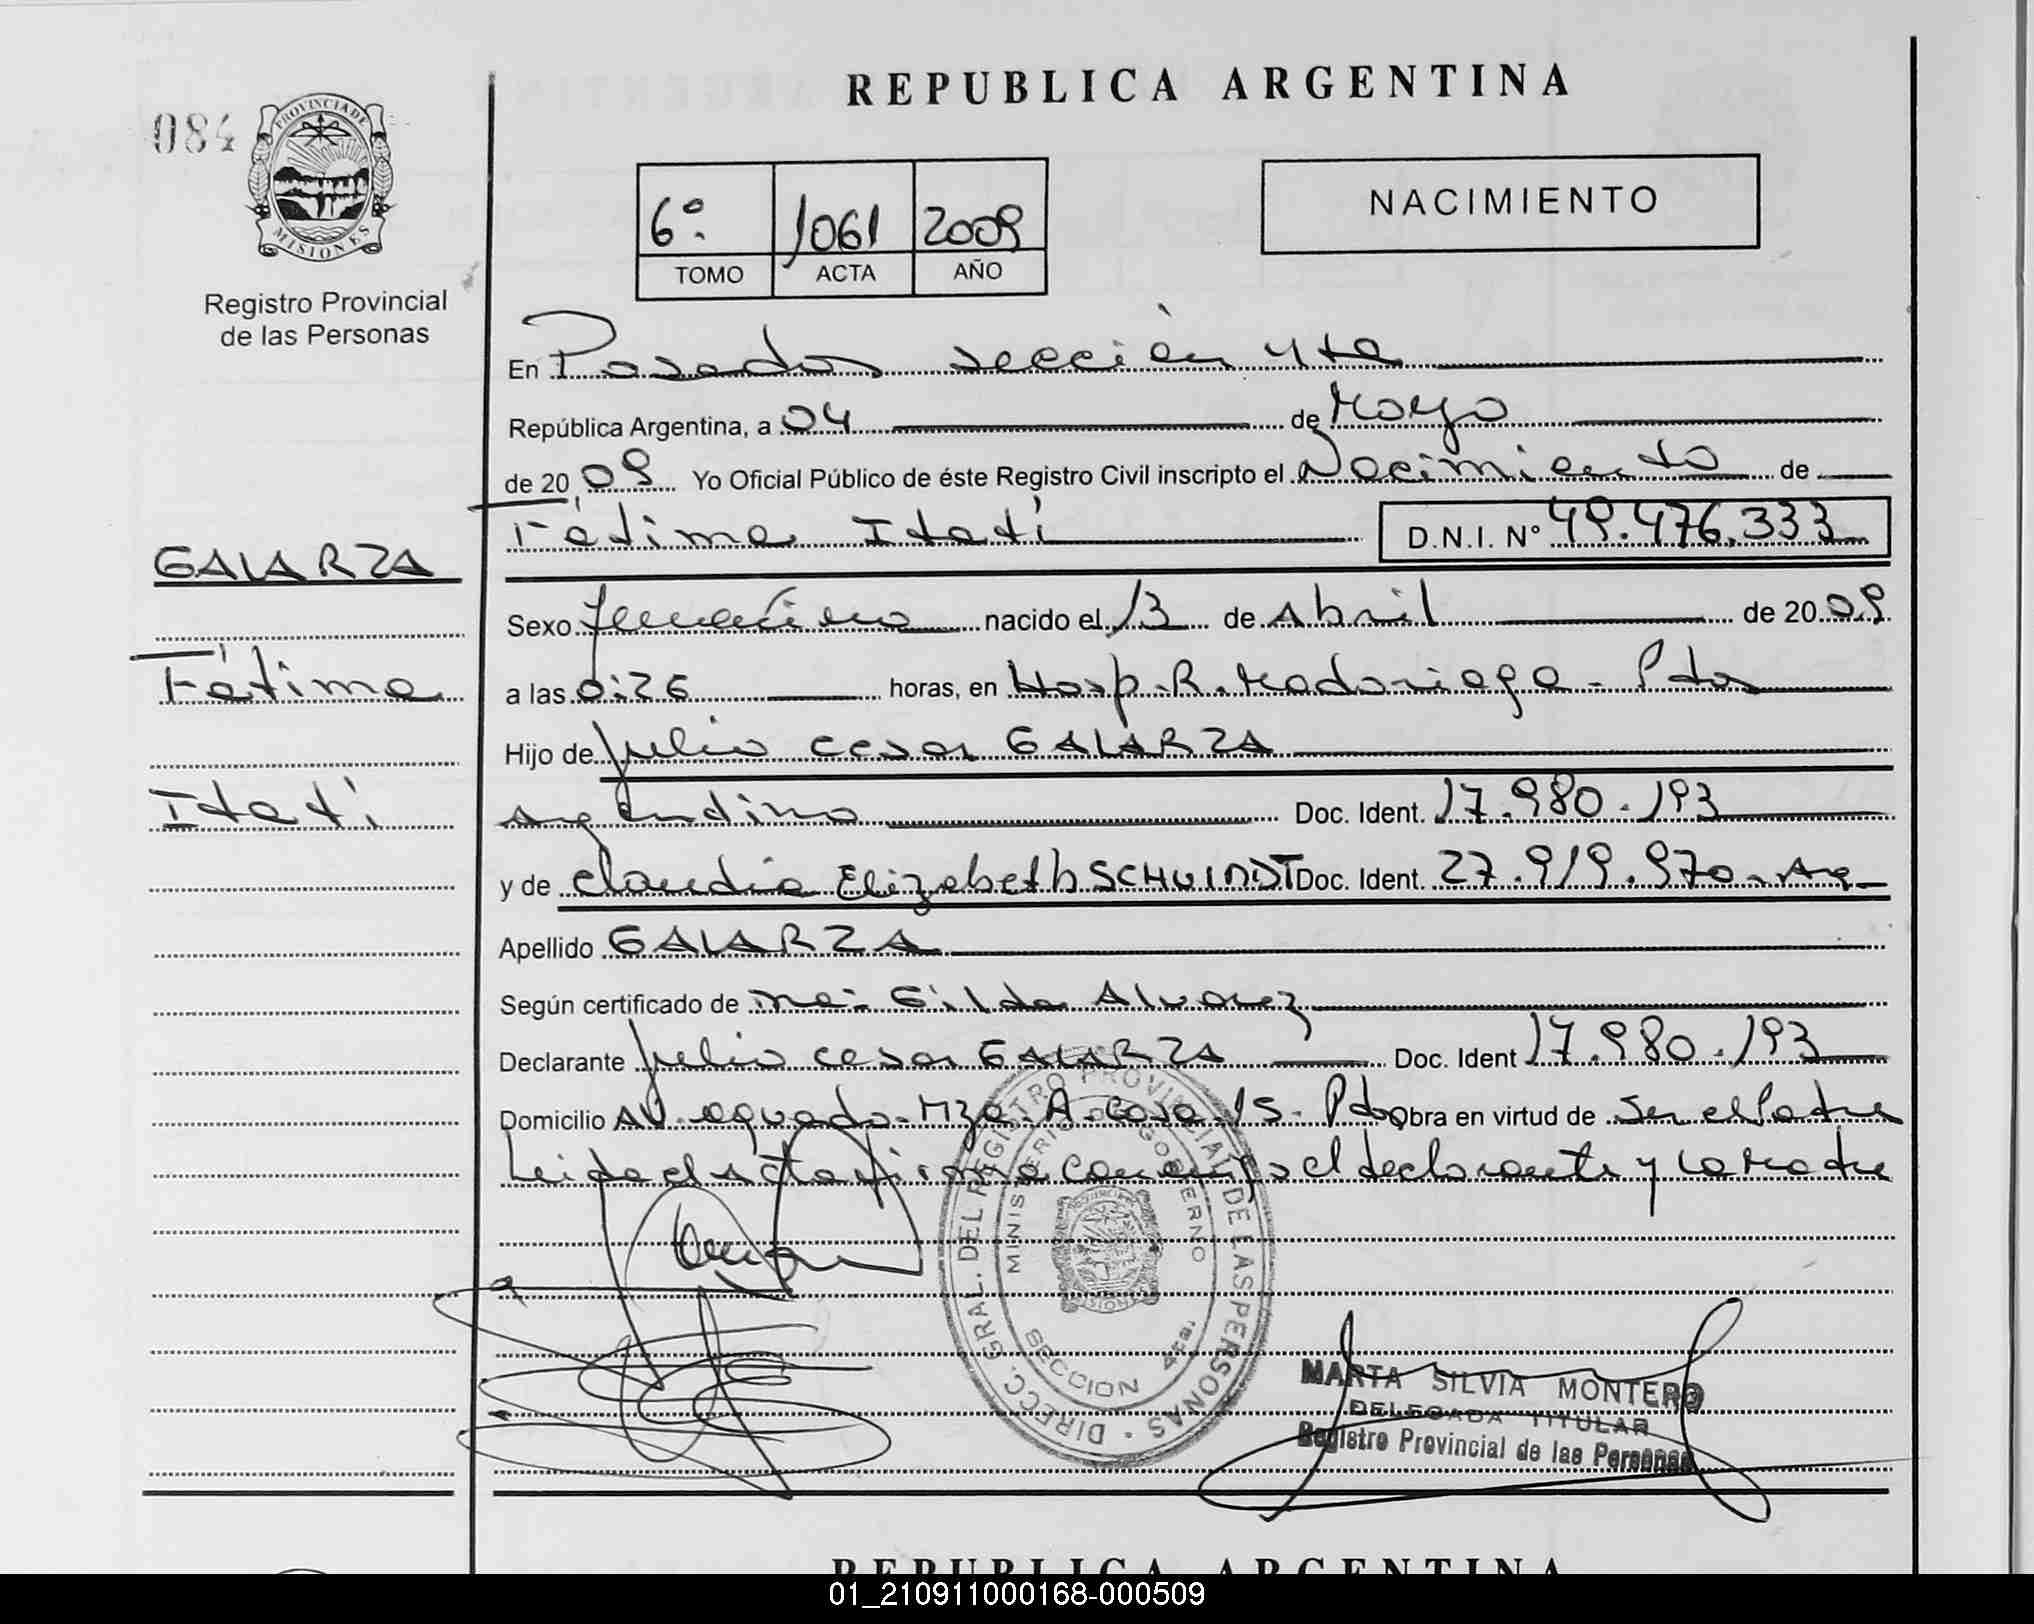 REPUBLICA ARGENTINA
084
PROVINCIA DE
MISIONES
Registro Provincial
de las Personas
6º 1061 2009
TOMO ACTA AÑO
NACIMIENTO
En Posadas sección 4ta
República Argentina, a 04 de Mayo
de 2009 Yo Oficial Público de éste Registro Civil inscripto el Nacimiento de
Fátima Itatí D.N.I. Nº 49.476.333
GALARZA
Fátima
Itatí
Sexo femenino nacido el 13 de Abril de 2009
a las 0:26 horas, en Hosp. R. Madariaga - Pdas
Hijo de Julio cesar GALARZA
Argentino Doc. Ident. 17.980.193
y de Claudia Elizabeth SCHUINDT Doc. Ident. 27.919.970 - Arg
Apellido GALARZA
Según certificado de Gilda Alvarez
Declarante Julio cesar GALARZA Doc. Ident 17.980.193
Domicilio AV. aguado - Mza. A. casa 15 - Pdas Obra en virtud de Ser el Padre
Leida el Acta firma conmigo el declarante y La Madre
DIRECC. GRAL. DEL REGISTRO PROVINCIAL DE LAS PERSONAS
MINISTERIO GOBIERNO
SECCION 4ta.
MARTA SILVIA MONTERO
DELEGADA TITULAR
Registro Provincial de las Personas
REPUBLICA ARGENTINA
01_210911000168-000509